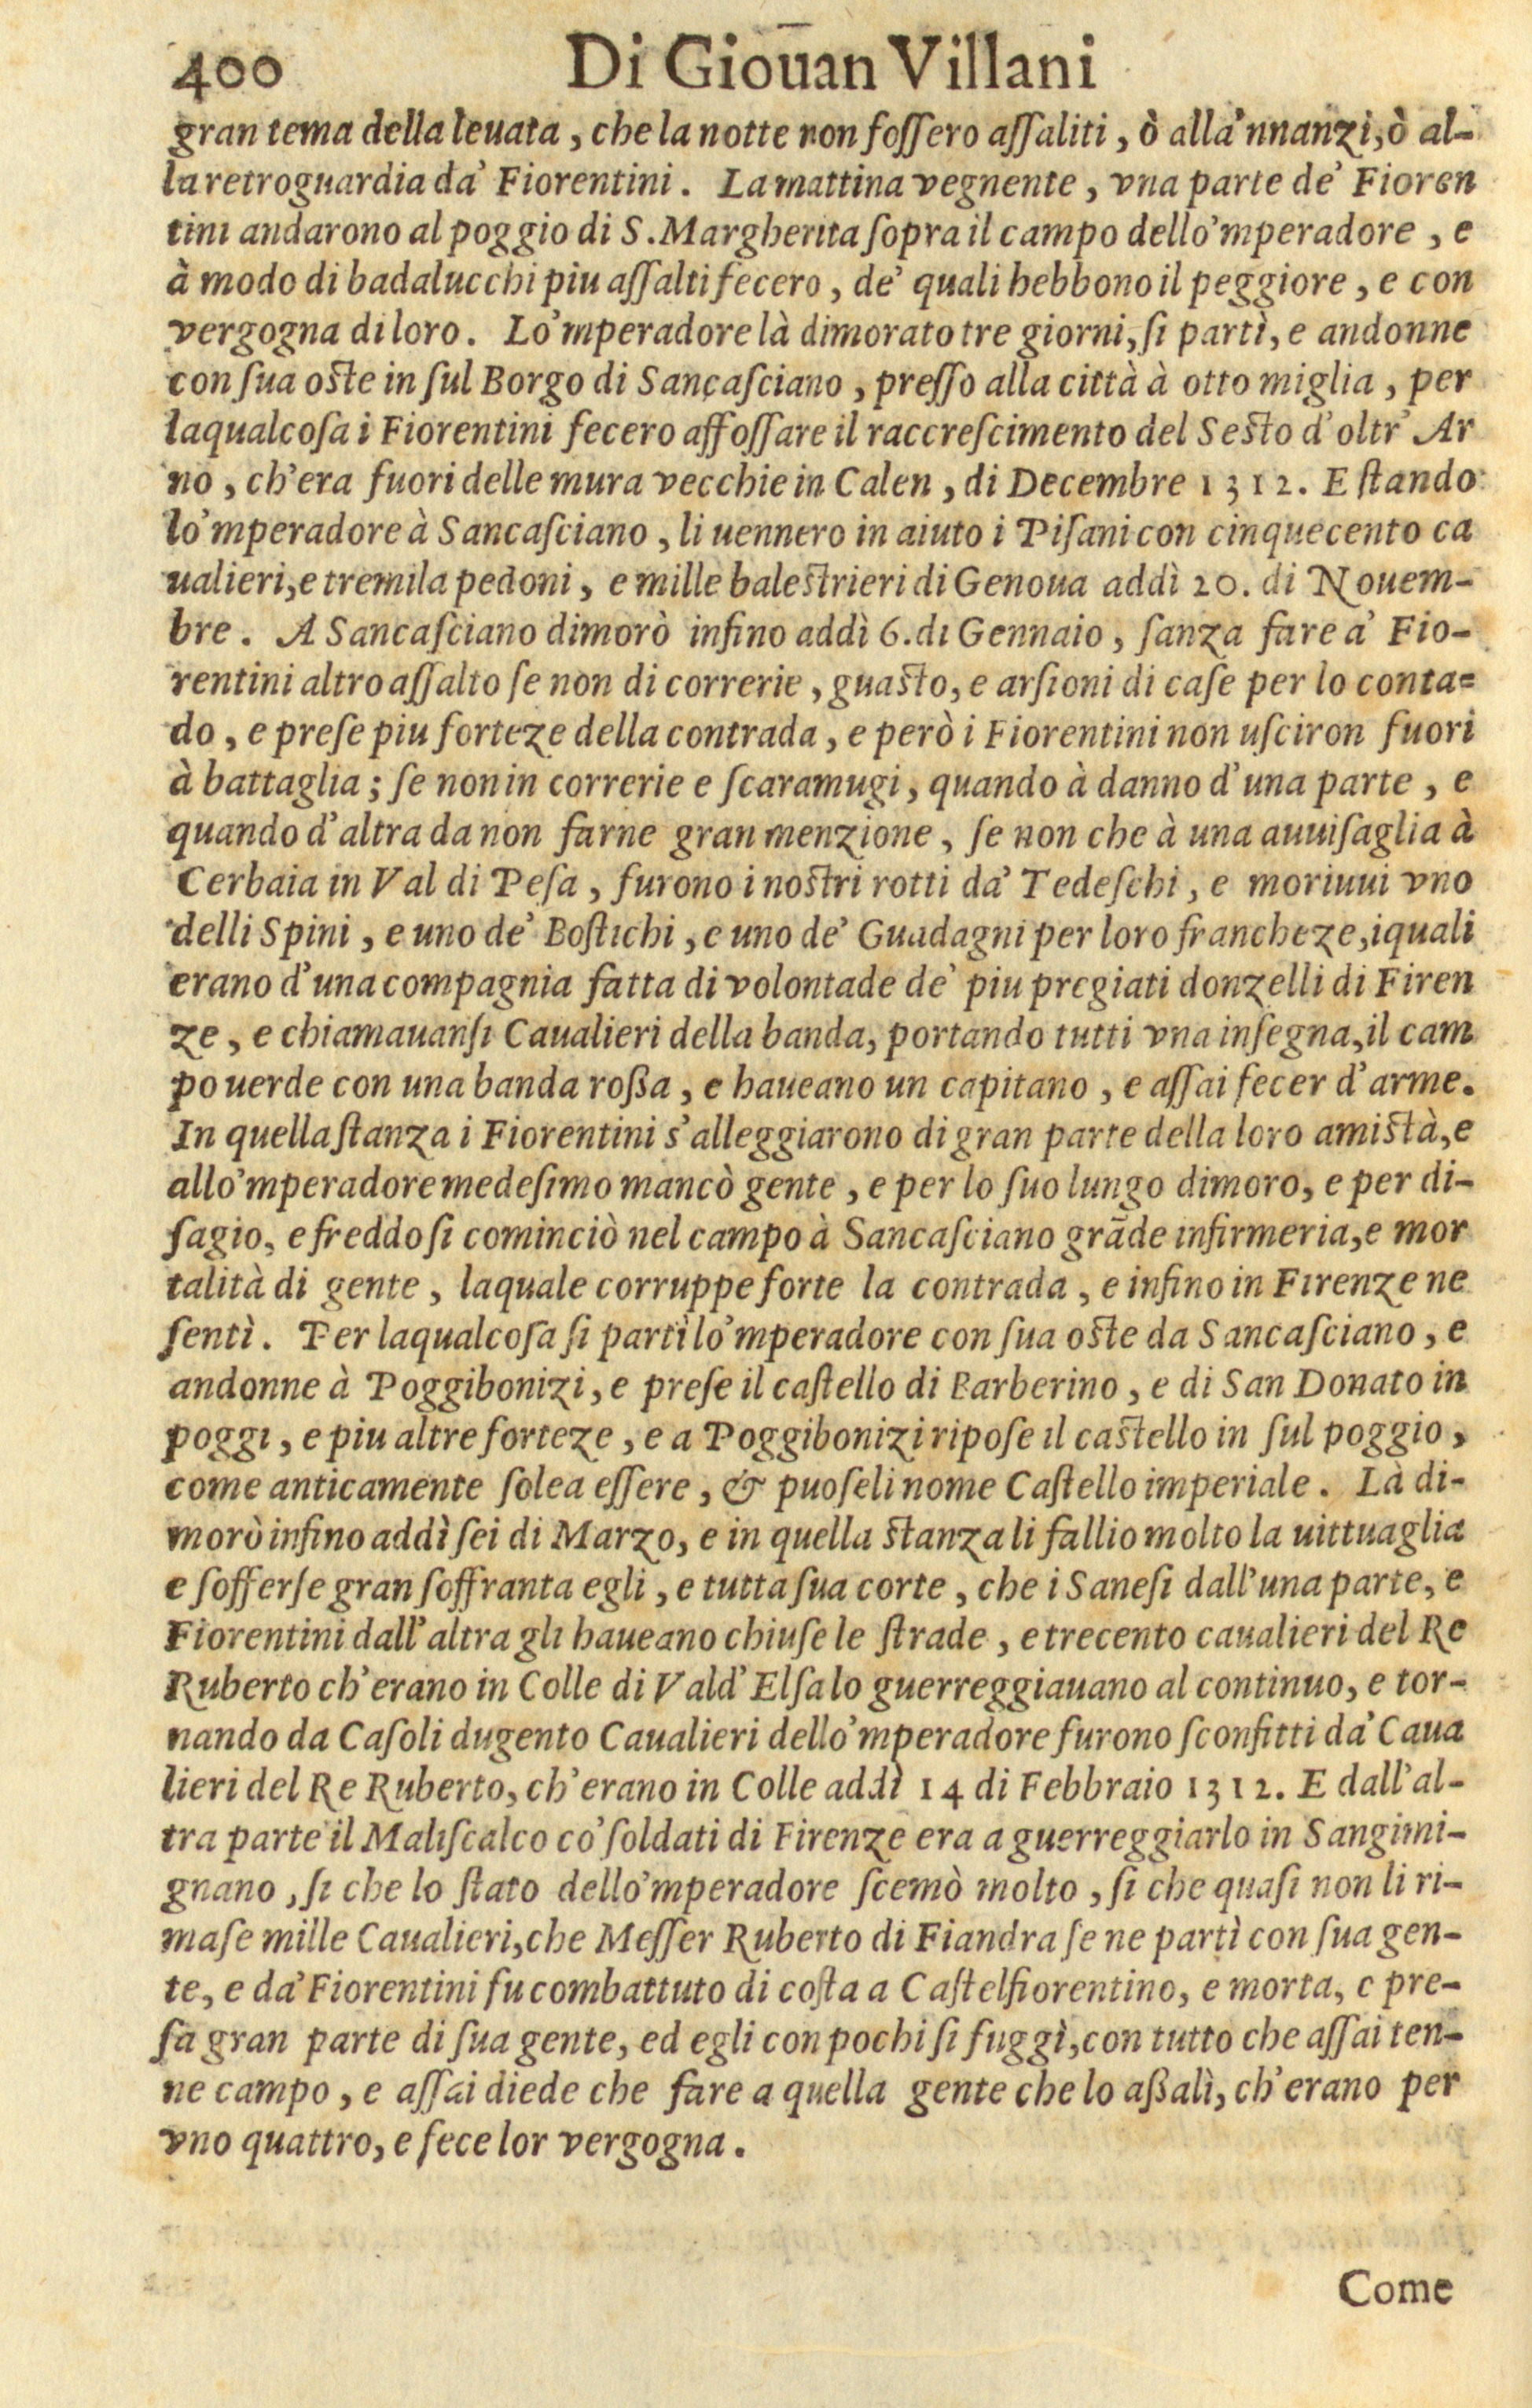 400 Di Gioūan Villani
gran tema della leuata, che la notte non foſſero aſſaliti, ò alla'nnanzi, ò al-
la retroguardia da' Fiorentini. La mattina vegnente, vna parte de' Fioren
tini andarono al poggio di S. Margherita ſopra il campo dello'mperadore, e
à modo di badalucchi piu aſſalti fecero, de' quali hebbono il peggiore, e con
vergogna di loro. Lo'mperadore là dimorato tre giorni, ſi partì, e andonne
con ſua oſte in ſul Borgo di Sancaſciano, preſſo alla città à otto miglia, per
laqualcoſa i Fiorentini fecero affoſſare il raccreſcimento del Seſto d'oltr' Ar
no, ch'era fuori delle mura vecchie in Calen, di Decembre 1312. E ſtando
lo'mperadore à Sancaſciano, li uennero in aiuto i Piſani con cinquecento ca
ualieri, e tremila pedoni, e mille baleſtrieri di Genoua addì 20. di Nouem-
bre. A Sancaſciano dimorò infino addì 6. di Gennaio, ſanza fare a' Fio-
rentini altro aſſalto ſe non di correrie, guaſto, e arſioni di caſe per lo conta-
do, e preſe piu forteze della contrada, e però i Fiorentini non uſciron fuori
à battaglia; ſe non in correrie e ſcaramugi, quando à danno d'una parte, e
quando d'altra da non farne gran menzione, ſe non che à una auuiſaglia à
Cerbaia in Val di Peſa, furono i noſtri rotti da' Tedeſchi, e moriuui vno
delli Spini, e uno de' Boſtichi, e uno de' Guadagni per loro francheze, iquali
erano d'una compagnia fatta di volontade de' piu pregiati donzelli di Firen
ze, e chiamauanſi Caualieri della banda, portando tutti vna inſegna, il cam
po uerde con una banda roßa, e haueano un capitano, e aſſai fecer d'arme.
In quella ſtanza i Fiorentini s'alleggiarono di gran parte della loro amiſtà, e
allo'mperadore medeſimo mancò gente, e per lo ſuo lungo dimoro, e per di-
ſagio, e freddo ſi cominciò nel campo à Sancaſciano grāde infirmeria, e mor
talità di gente, laquale corruppe forte la contrada, e infino in Firenze ne
ſentì. Per laqualcoſa ſi partì lo'mperadore con ſua oſte da Sancaſciano, e
andonne à Poggibonizi, e preſe il caſtello di Barberino, e di San Donato in
poggi, e piu altre forteze, e a Poggibonizi ripoſe il caſtello in ſul poggio,
come anticamente ſolea eſſere, & puoſeli nome Caſtello imperiale. Là di-
morò infino addì ſei di Marzo, e in quella ſtanza li fallio molto la uittuaglia
e ſofferſe gran ſoffranta egli, e tutta ſua corte, che i Saneſi dall'una parte, e
Fiorentini dall'altra gli haueano chiuſe le ſtrade, e trecento caualieri del Re
Ruberto ch'erano in Colle di Vald'Elſa lo guerreggiauano al continuo, e tor-
nando da Caſoli dugento Caualieri dello'mperadore furono ſconfitti da' Caua
lieri del Re Ruberto, ch'erano in Colle addì 14 di Febbraio 1312. E dall'al-
tra parte il Maliſcalco co' ſoldati di Firenze era a guerreggiarlo in Sangimi-
gnano, ſi che lo ſtato dello'mperadore ſcemò molto, ſi che quaſi non li ri-
maſe mille Caualieri, che Meſſer Ruberto di Fiandra ſe ne partì con ſua gen-
te, e da' Fiorentini fu combattuto di coſta a Caſtelfiorentino, e morta, e pre-
ſa gran parte di ſua gente, ed egli con pochi ſi fuggì, con tutto che aſſai ten-
ne campo, e aſſai diede che fare a quella gente che lo aßalì, ch'erano per
vno quattro, e fece lor vergogna.
Come